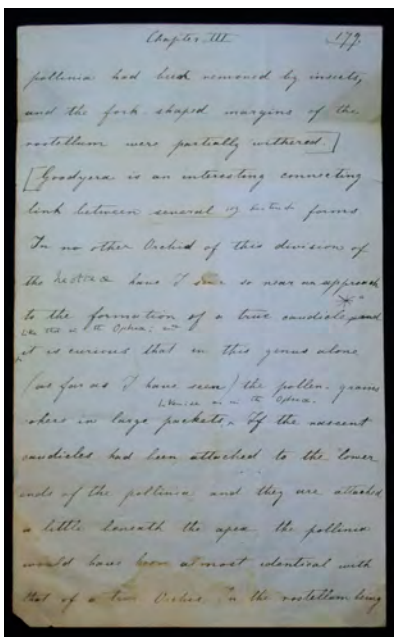 Chapter III 179
pollinia had been removed by insects,
and the fork-shaped margins of the
rostellum were partially withered.]
[Goodyera is an interesting connecting
link between several distinct forms
In no other Orchid of this division of
the Neottiæ have I seen so near an approach
to the formation of a true caudicle, and
like that in the Ophreæ;
it is curious that in this genus alone
(as far as I have seen) the pollen-grains
likewise as in the Ophreæ.
cohere in large packets. If the nascent
caudicles had been attached to the lower
ends of the pollinia and they are attached
a little beneath the apex the pollinia
would have been almost identical with
that of a true Orchis. In the rostellum being